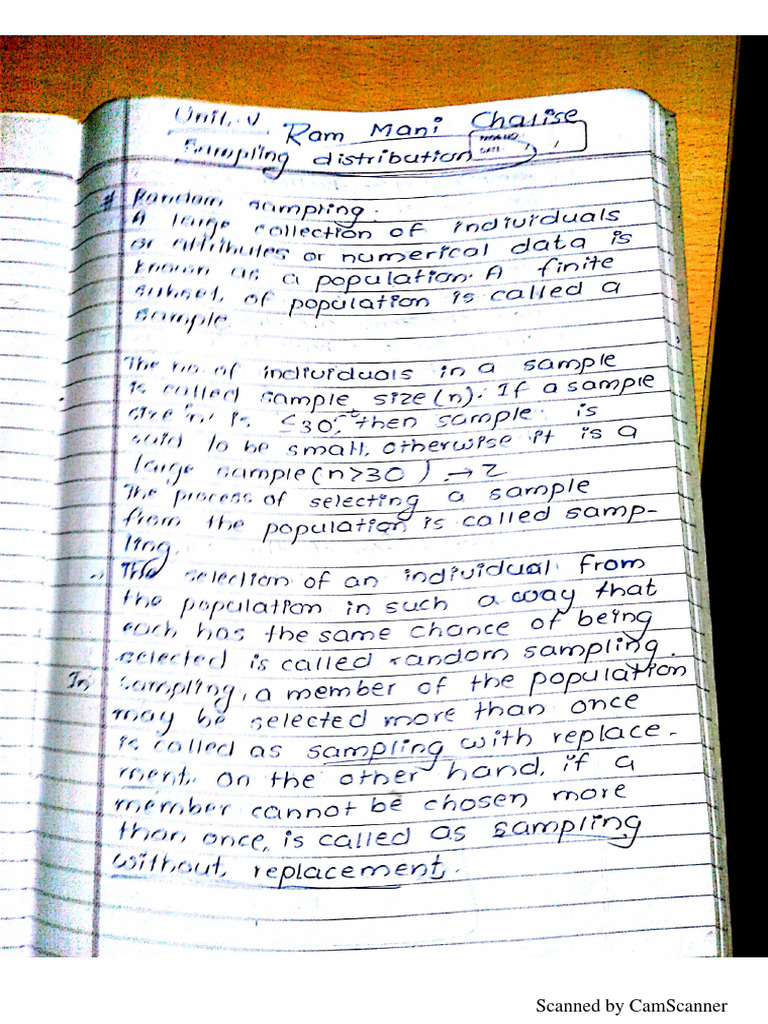 Unit, V Ram Mani Chalise
PAGE NO.
DATE: / /
Sampling distribution
# Random sampling.
A large collection of individuals
or attributes or numerical data is
known as a population. A finite
subset, of population is called a
sample.
The no. of individuals in a sample
is called sample size (n). If a sample
size 'n' is ≤30, then sample is
said to be small, otherwise it is a
large sample (n>30) → z
The process of selecting a sample
from the population is called samp-
ling.
The selection of an individual from
the population in such a way that
each has the same chance of being
selected is called random sampling.
In sampling, a member of the population
may be selected more than once
is called as sampling with replace-
ment. On the other hand, if a
member cannot be chosen more
than once, is called as sampling
without, replacement.
Scanned by CamScanner